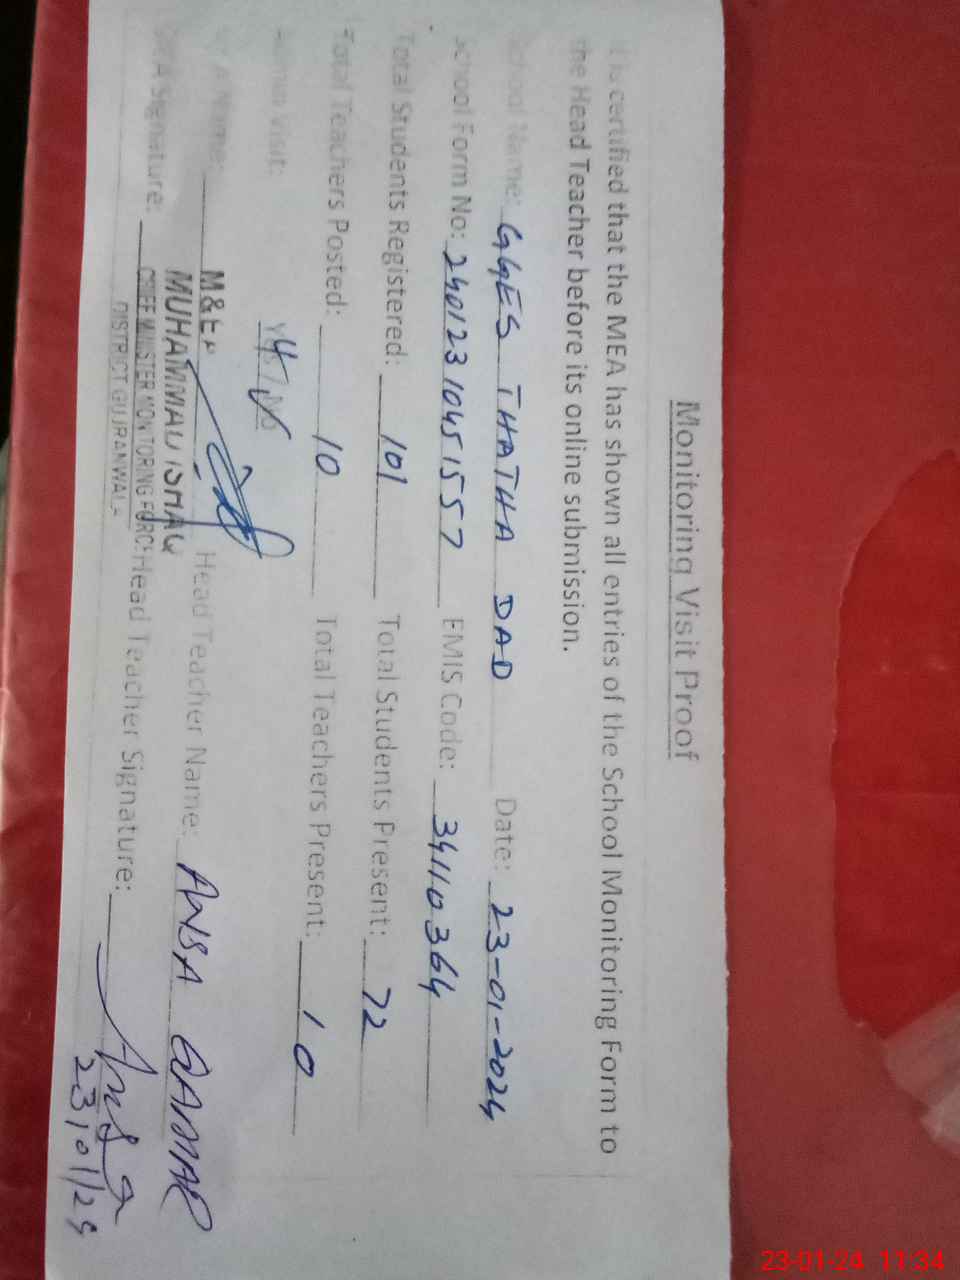 Monitoring Visit Proof
It is certified that the MEA has shown all entries of the School Monitoring Form to
the Head Teacher before its online submission.
School Name: GGES THATHA DAD Date: 23-01-2024
School Form No: 2401231045157 EMIS Code: 34110364
Total Students Registered: 101 Total Students Present: 72
Total Teachers Posted: 10 Total Teachers Present: 10
Visit:
Name: Head Teacher Name: ANSA QAMAR
MUHAMMAD ISHAQ
Signature: CHIEF MINISTER MONITORING FORCE Head Teacher Signature: Ansa
DISTRICT GUJRANWALA
23/01/24
23-01-24 11:34